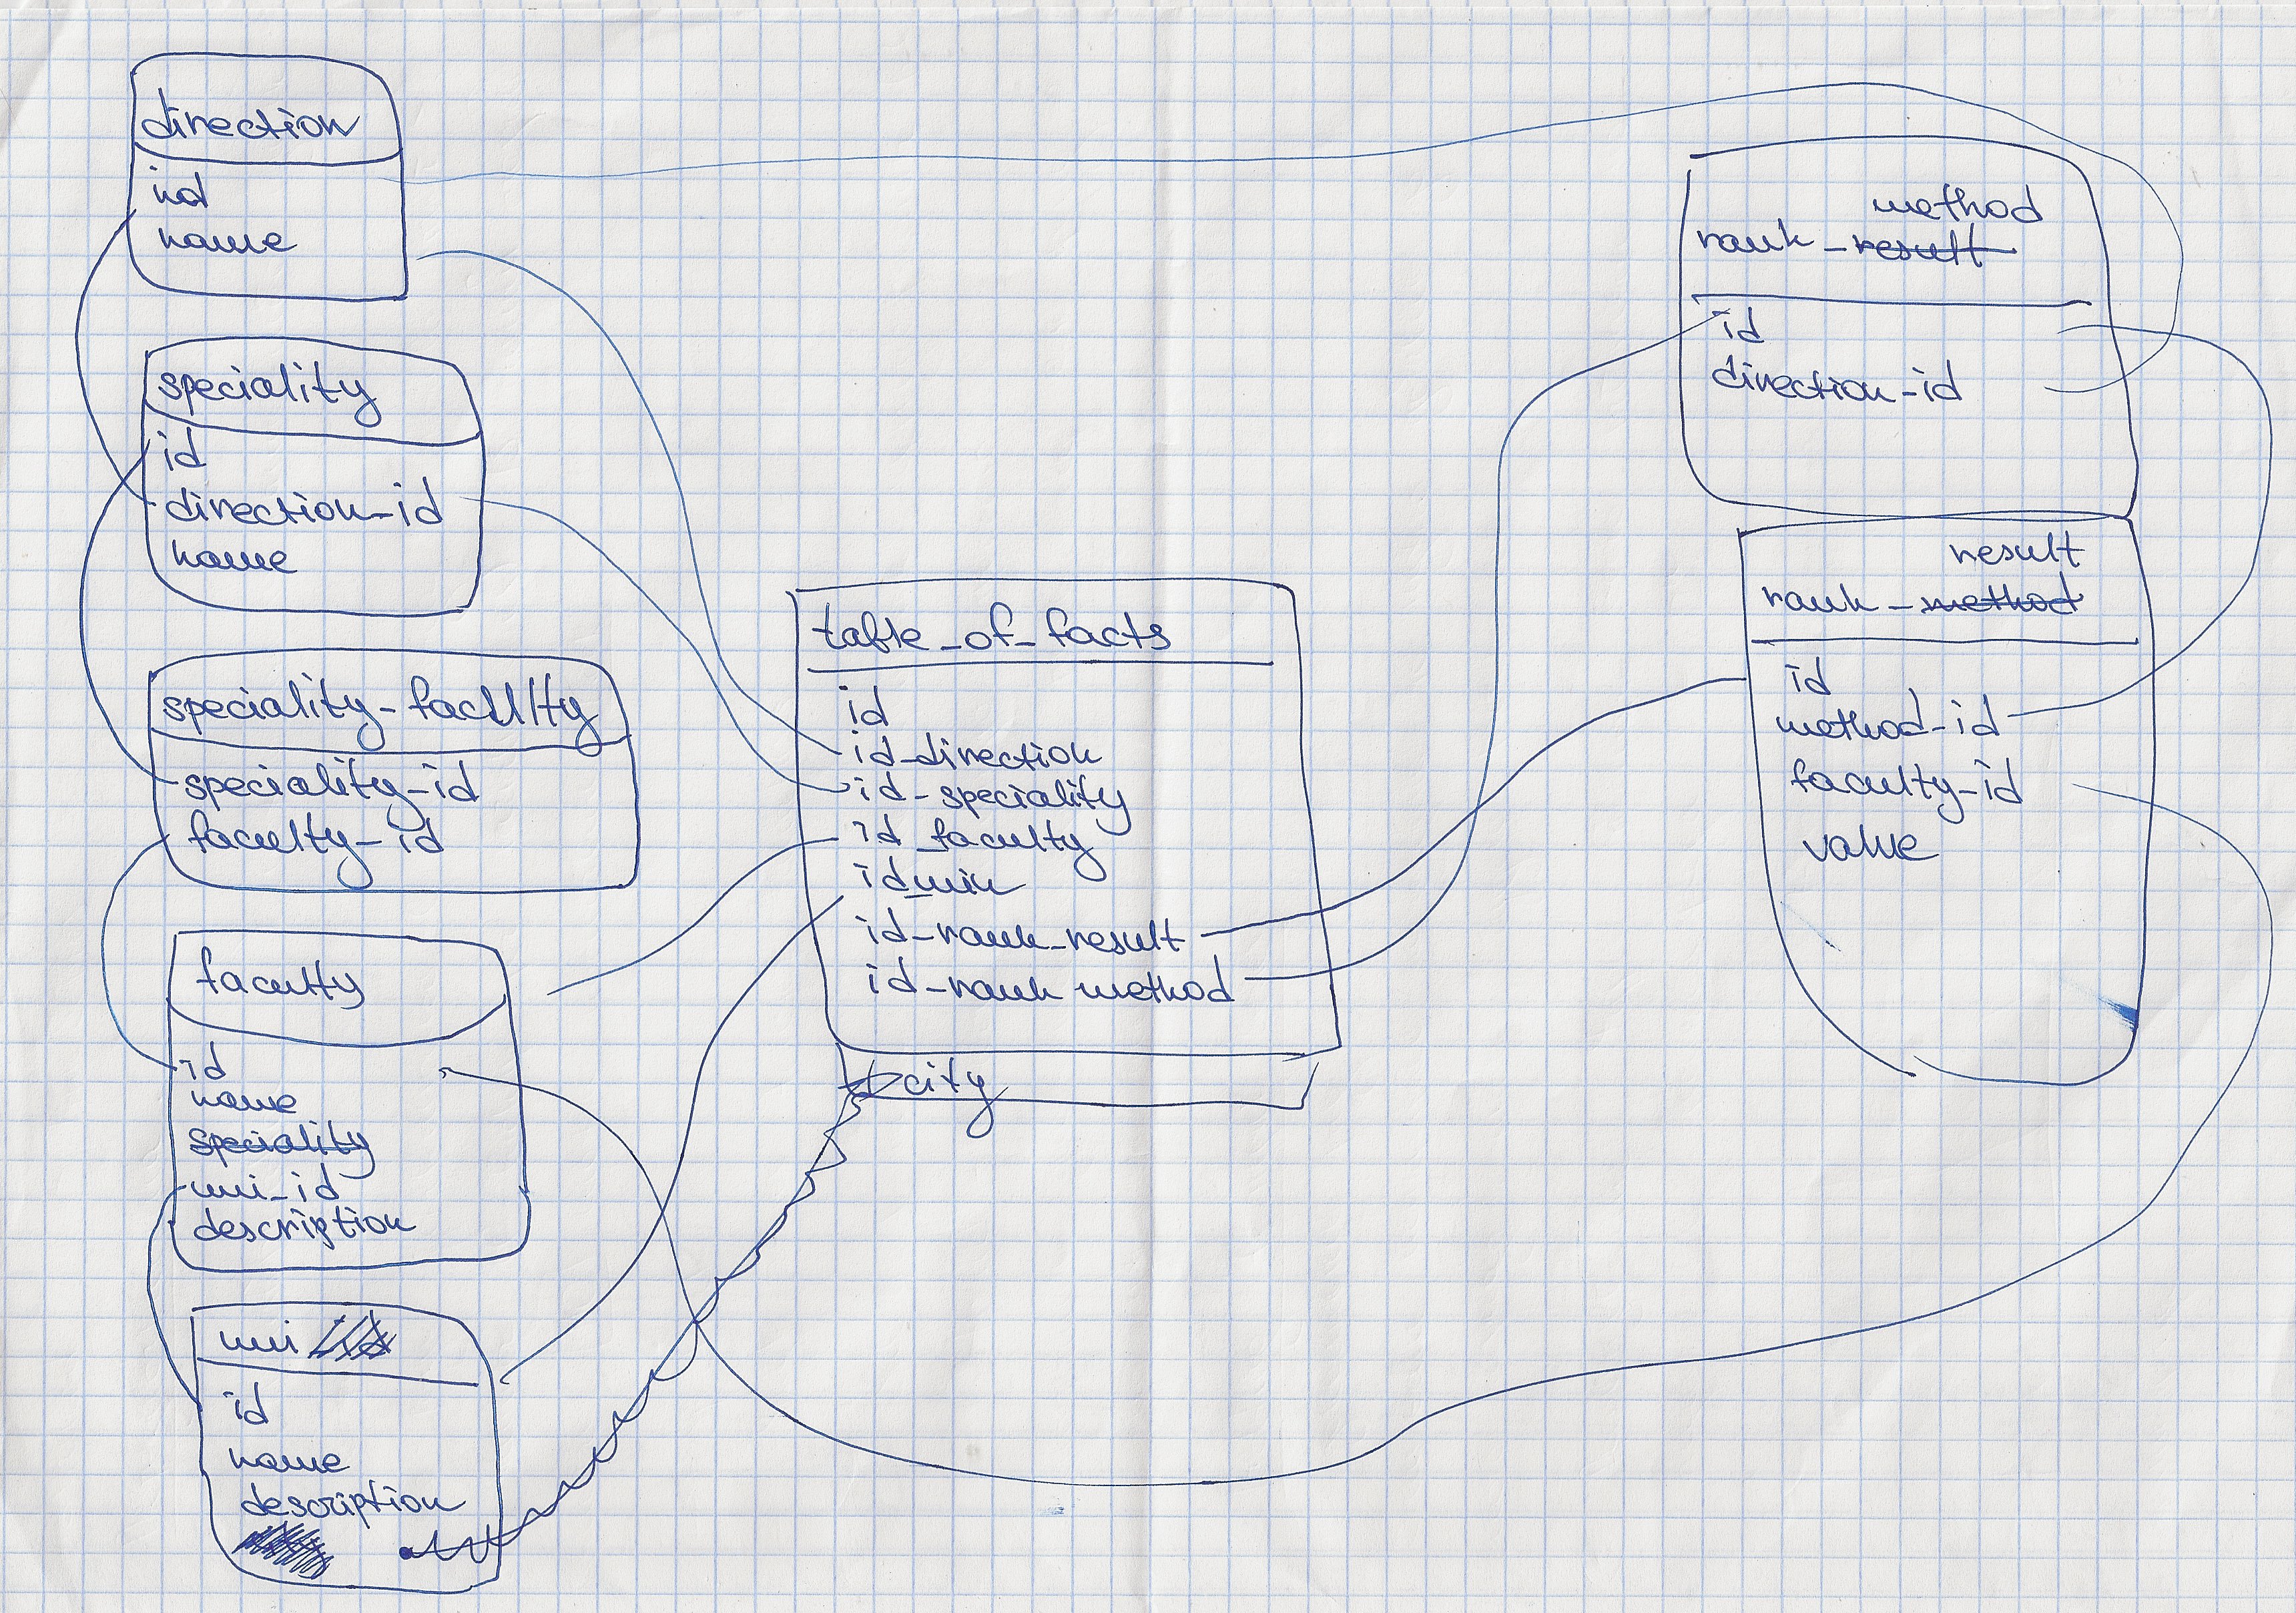 direction
id
name
speciality
id
direction_id
name
speciality-faculty
speciality-id
faculty-id
faculty
id
name
speciality
uni_id
description
uni
id
name
description
table_of_facts
id
id_direction
id_speciality
id_faculty
id_uni
id_rank_result
id_rank method
city
method
rank_result
id
direction_id
result
rank_method
id
method-id
faculty-id
value